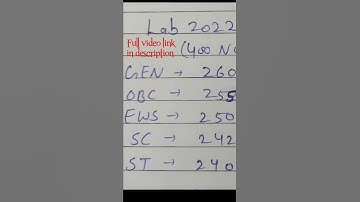 Lab 2022
Full video link
in description
(400 No
GEN → 260
OBC → 255
EWS → 250
SC → 242
ST → 240